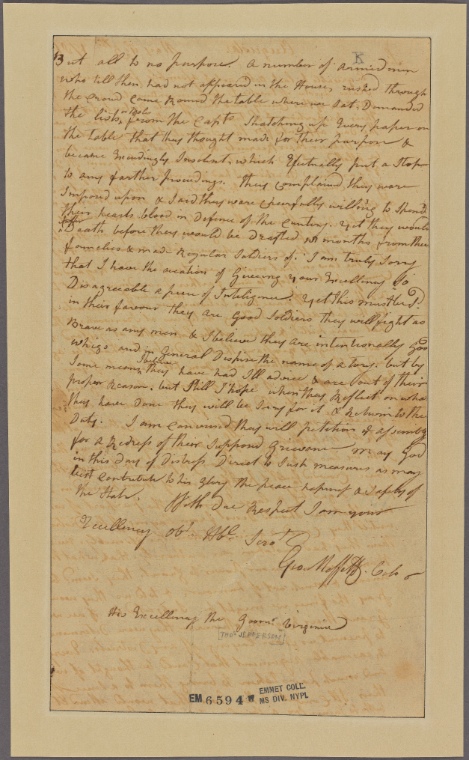 But all to no purpose. A number of armed men
who till then had not appeared in the House, rushed through
the Croud Came round the table where we Sat, Demanded
the lists, from the Capts Snatching up Every paper on
the table that they thought made for their purpose &
became Exceedingly Insolent, which Efectually put a Stop
to any farther proceedings. They Complained they were
Imposed upon & Said they ware Chearfully willing to Spend
their hearts blood in Defence of the Cuntry. Yet they would
Death before they would be Drafted months from their
families & made Regular Soldiers of. I am truly Sorry
that I have the occation of Giveing your Excellency So
Disagreeable a piece of Inteligence. Yet this must be Sd
in their favour they are Good Soldiers they will fight as
Brave as any men & I believe they are intentionally Good
whigs and in General Despise the name of a tory, but by
Some means, they have had Ill advice & are out of their
proper Reason, but Still I hope when they Reflect on what
they have Done they will be Sory for it & Return to their
Duty. I am convinced they will petition Assembly
for a Redress of their Supposed Grievance may God
in this Day of Distress Direct to Such measures as may
best Contribute to his Glory the peace & Safety of
the State.
With Due Respect I am your
Excellency obt. Hble. Servt.
Geo. Moffett. Colo
His Excellency the Governr. Virginia
[THOS JEFFERSON]
EM. 6594 W EMMET COLL.
MS DIV. NYPL